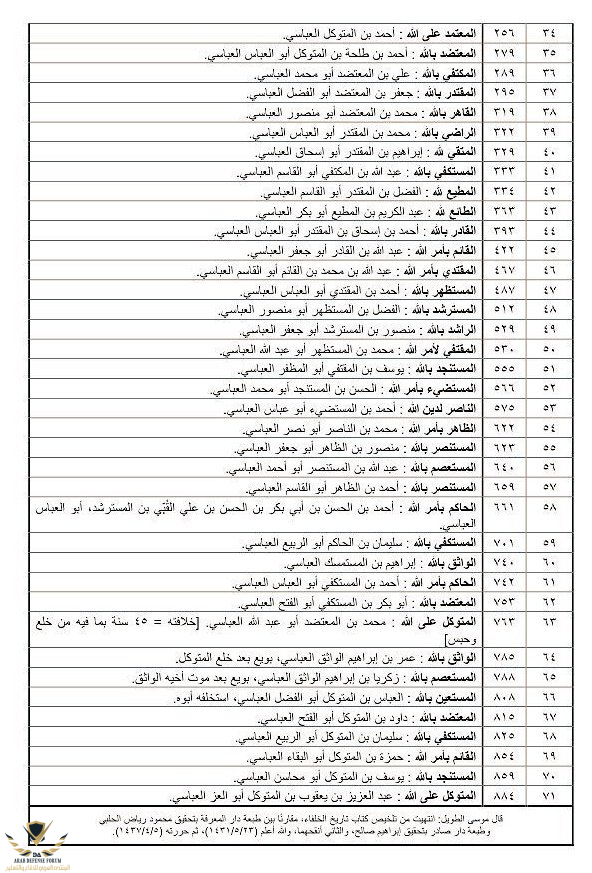 ٣٤ ٢٥٦ المعتمد على الله : أحمد بن المتوكل العباسي.
٣٥ ٢٧٩ المعتضد بالله : أحمد بن طلحة بن المتوكل أبو العباس العباسي.
٣٦ ٢٨٩ المكتفي بالله : علي بن المعتضد أبو محمد العباسي.
٣٧ ٢٩٥ المقتدر بالله : جعفر بن المعتضد أبو الفضل العباسي.
٣٨ ٣١٩ القاهر بالله : محمد بن المعتضد أبو منصور العباسي.
٣٩ ٣٢٢ الراضي بالله : محمد بن المقتدر أبو العباس العباسي.
٤٠ ٣٢٩ المتقي لله : إبراهيم بن المقتدر أبو إسحاق العباسي.
٤١ ٣٣٣ المستكفي بالله : عبد الله بن المكتفي أبو القاسم العباسي.
٤٢ ٣٣٤ المطيع لله : الفضل بن المقتدر أبو القاسم العباسي.
٤٣ ٣٦٣ الطائع لله : عبد الكريم بن المطيع أبو بكر العباسي.
٤٤ ٣٩٣ القادر بالله : أحمد بن إسحاق بن المقتدر أبو العباس العباسي.
٤٥ ٤٢٢ القائم بأمر الله : عبد الله بن القادر أبو جعفر العباسي.
٤٦ ٤٦٧ المقتدي بأمر الله : عبد الله بن محمد بن القائم أبو القاسم العباسي.
٤٧ ٤٨٧ المستظهر بالله : أحمد بن المقتدي أبو العباس العباسي.
٤٨ ٥١٢ المسترشد بالله : الفضل بن المستظهر أبو منصور العباسي.
٤٩ ٥٢٩ الراشد بالله : منصور بن المسترشد أبو جعفر العباسي.
٥٠ ٥٣٠ المقتفي لأمر الله : محمد بن المستظهر أبو عبد الله العباسي.
٥١ ٥٥٥ المستنجد بالله : يوسف بن المقتفي أبو المظفر العباسي.
٥٢ ٥٦٦ المستضيء بأمر الله : الحسن بن المستنجد أبو محمد العباسي.
٥٣ ٥٧٥ الناصر لدين الله : أحمد بن المستضيء أبو عباس العباسي.
٥٤ ٦٢٢ الظاهر بأمر الله : محمد بن الناصر أبو نصر العباسي.
٥٥ ٦٢٣ المستنصر بالله : منصور بن الظاهر أبو جعفر العباسي.
٥٦ ٦٤٠ المستعصم بالله : عبد الله بن المستنصر أبو أحمد العباسي.
٥٧ ٦٥٩ المستنصر بالله : أحمد بن الظاهر أبو القاسم العباسي.
٥٨ ٦٦١ الحاكم بأمر الله : أحمد بن الحسن بن أبي بكر بن الحسن بن علي القُبّي بن المسترشد، أبو العباس
العباسي.
٥٩ ٧٠١ المستكفي بالله : سليمان بن الحاكم أبو الربيع العباسي.
٦٠ ٧٤٠ الواثق بالله : إبراهيم بن المستمسك العباسي.
٦١ ٧٤٢ الحاكم بأمر الله : أحمد بن المستكفي أبو العباس العباسي.
٦٢ ٧٥٣ المعتضد بالله : أبو بكر بن المستكفي أبو الفتح العباسي.
٦٣ ٧٦٣ المتوكل على الله : محمد بن المعتضد أبو عبد الله العباسي. [خلافته = ٤٥ سنة بما فيه من خلع
وحبس]
٦٤ ٧٨٥ الواثق بالله : عمر بن إبراهيم الواثق العباسي، بويع بعد خلع المتوكل.
٦٥ ٧٨٨ المستعصم بالله : زكريا بن إبراهيم الواثق العباسي، بويع بعد موت أخيه الواثق.
٦٦ ٨٠٨ المستعين بالله : العباس بن المتوكل أبو الفضل العباسي، استخلفه أبوه.
٦٧ ٨١٥ المعتضد بالله : داود بن المتوكل أبو الفتح العباسي.
٦٨ ٨٢٥ المستكفي بالله : سليمان بن المتوكل أبو الربيع العباسي.
٦٩ ٨٥٤ القائم بأمر الله : حمزة بن المتوكل أبو البقاء العباسي.
٧٠ ٨٥٩ المستنجد بالله : يوسف بن المتوكل أبو محاسن العباسي.
٧١ ٨٨٤ المتوكل على الله : عبد العزيز بن يعقوب بن المتوكل أبو العز العباسي.
قال موسى الطويل: انتهيت من تلخيص كتاب تاريخ الخلفاء، مقارنًا بين طبعة دار المعرفة بتحقيق محمود رياض الحلبي
وطبعة دار صادر بتحقيق إبراهيم صالح، والثاني أنقحهما، والله أعلم (١٤٣١/٥/٢٣)، ثم حررته (١٤٣٧/٤/٥).
DA
ARAB DEFENSE FORUM
المنتدى العربي للدفاع والتسليح